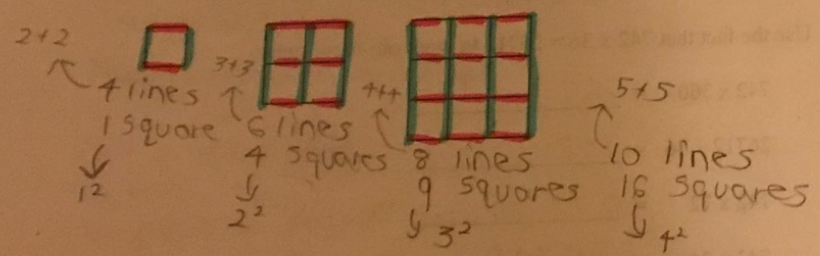 2+2
4 lines
1 square
1²
3+3
6 lines
4 squares
2²
4+4
8 lines
9 squares
3²
5+5
10 lines
16 squares
4²